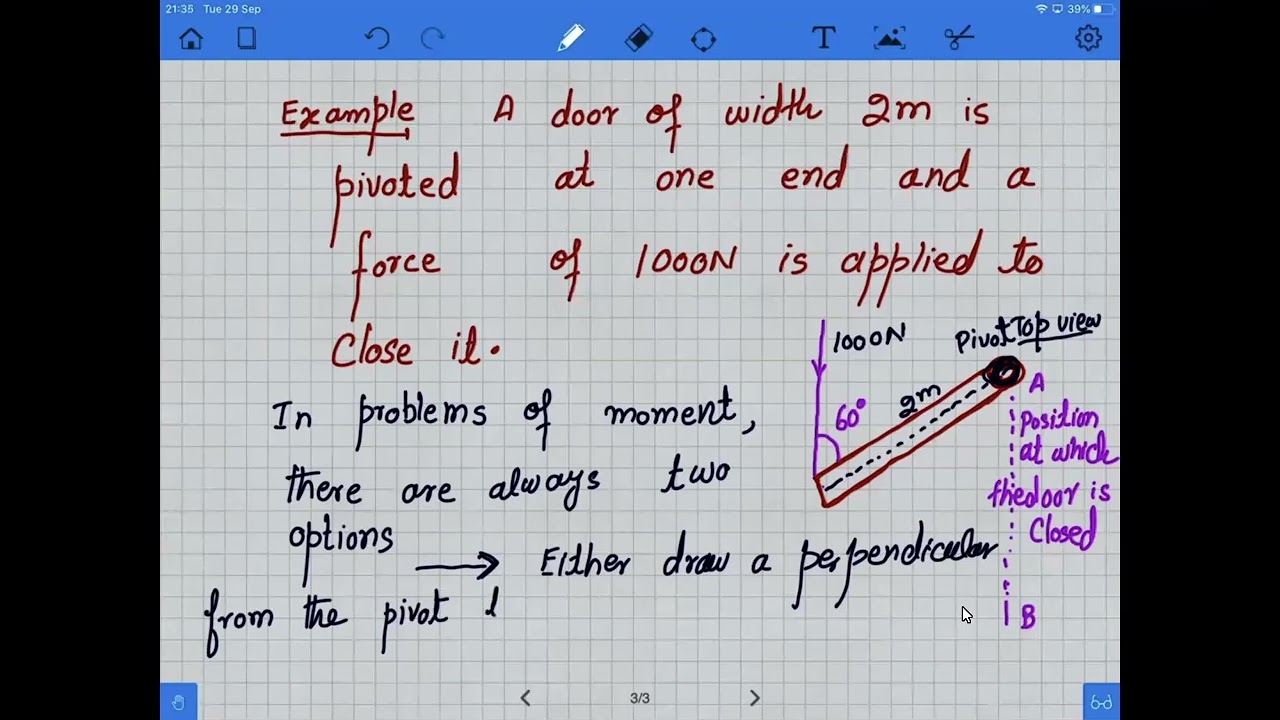 21:35 Tue 29 Sep
39%
T
Example A door of width 2m is
pivoted at one end and a
force of 1000N is applied to
Close it.
1000N
Pivot Top view
2m
60°
A
Position
at which
the door is
Closed
B
In problems of moment,
there are always two
options
→ Either draw a perpendicular
from the pivot
3/3